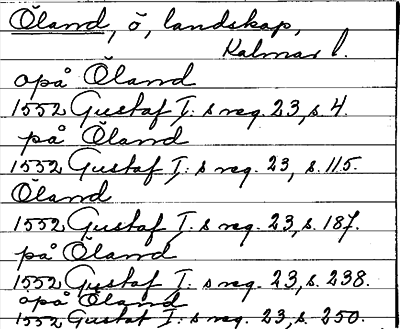 Öland, ö, landskap,
Kalmar l.
opå Öland
1552 Gustaf I: s reg. 23, s. 4.
på Öland
1552 Gustaf I: s reg. 23, s. 115.
Öland
1552 Gustaf I: s reg. 23, s. 187.
på Öland
1552 Gustaf I: s reg. 23, s. 238.
opå Öland
1552 Gustaf I: s reg. 23, s. 250.